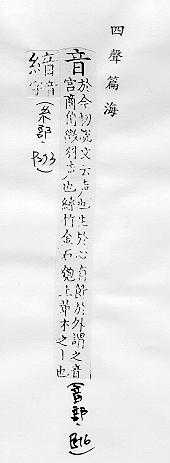 四聲篇海
音
於今切說文云声也生於心有節於外謂之音
宮商角徵羽声也絲竹金石匏土革木之丨也
(音部、P16)
𦂇
音音
字
(糸部、P33)